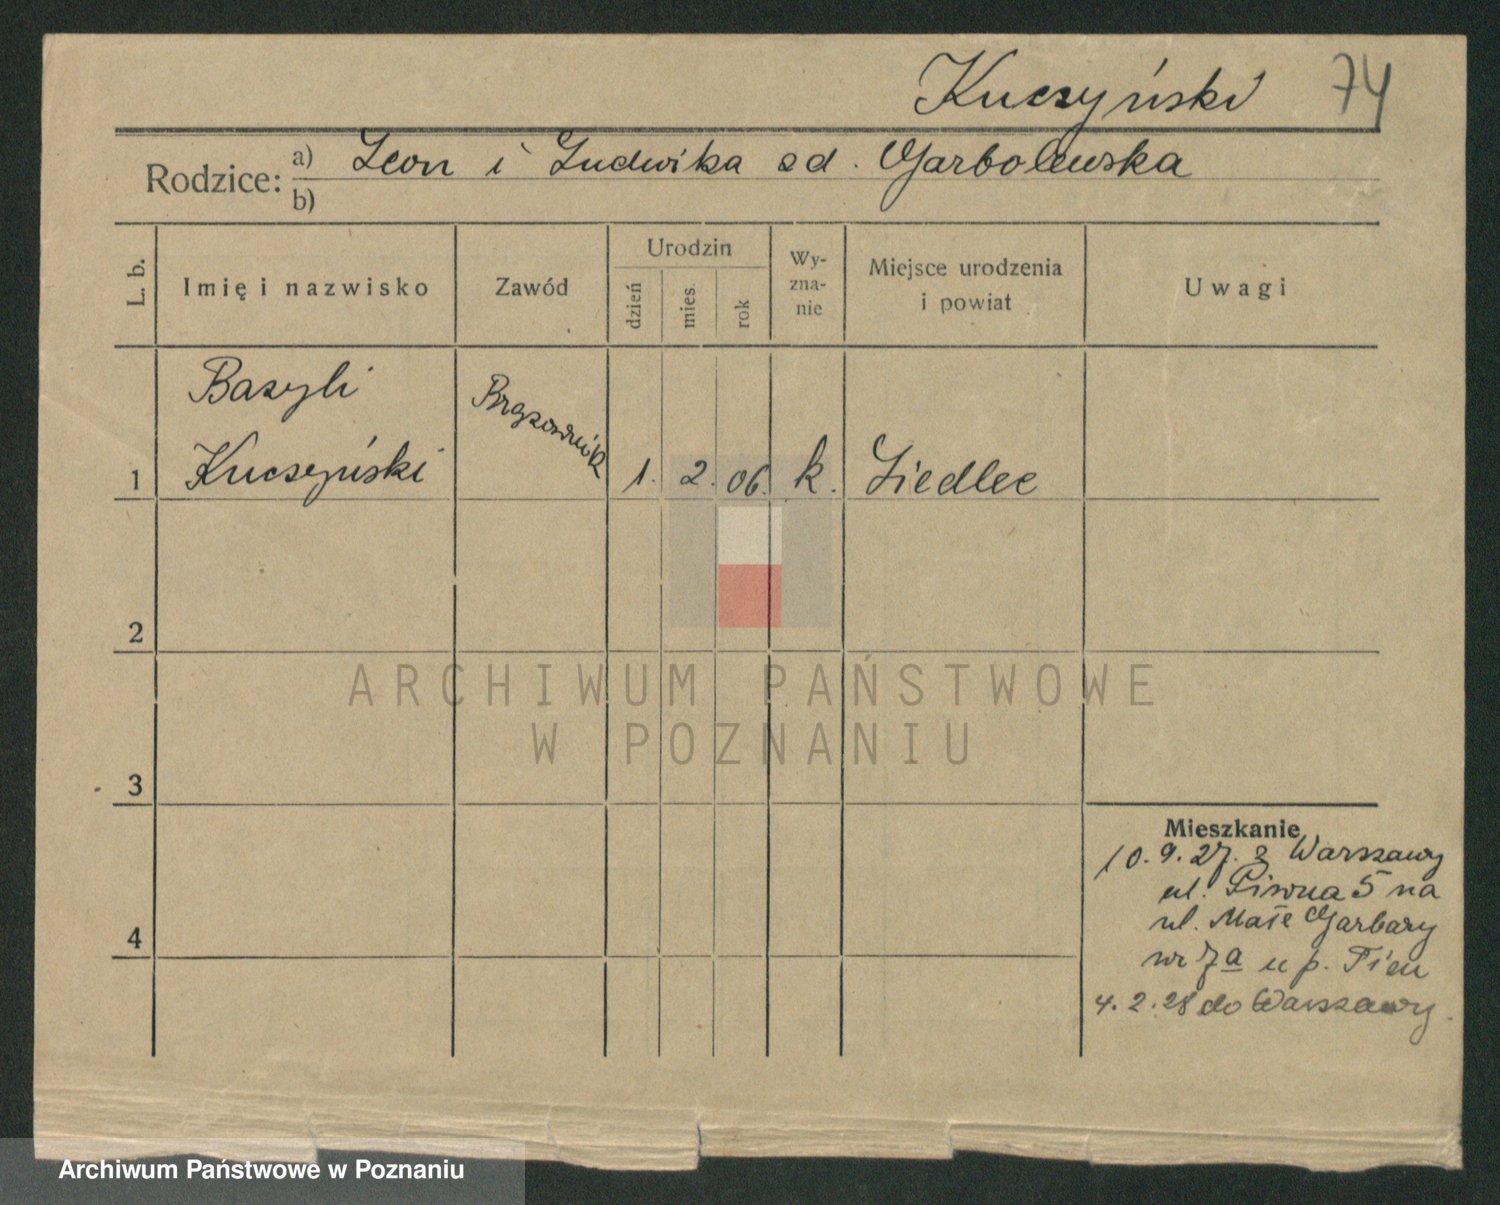 Kuczyński 74
Rodzice: a) Leon i Ludwika zd. Garbolewska
b)
L. b. Imię i nazwisko Zawód Urodzin dzień mies. rok Wyzna-nie Miejsce urodzenia i powiat Uwagi
Bazyli
1 Kuczyński Brązownik 1. 2. 06. k. Siedlce
2
ARCHIWUM PAŃSTWOWE
W POZNANIU
3
4
Mieszkanie
10.9.27. z Warszawy
ul. Piwna 5 na
ul. Małe Garbary
nr 7a u p.
4.2.28 do Warszawy.
Archiwum Państwowe w Poznaniu